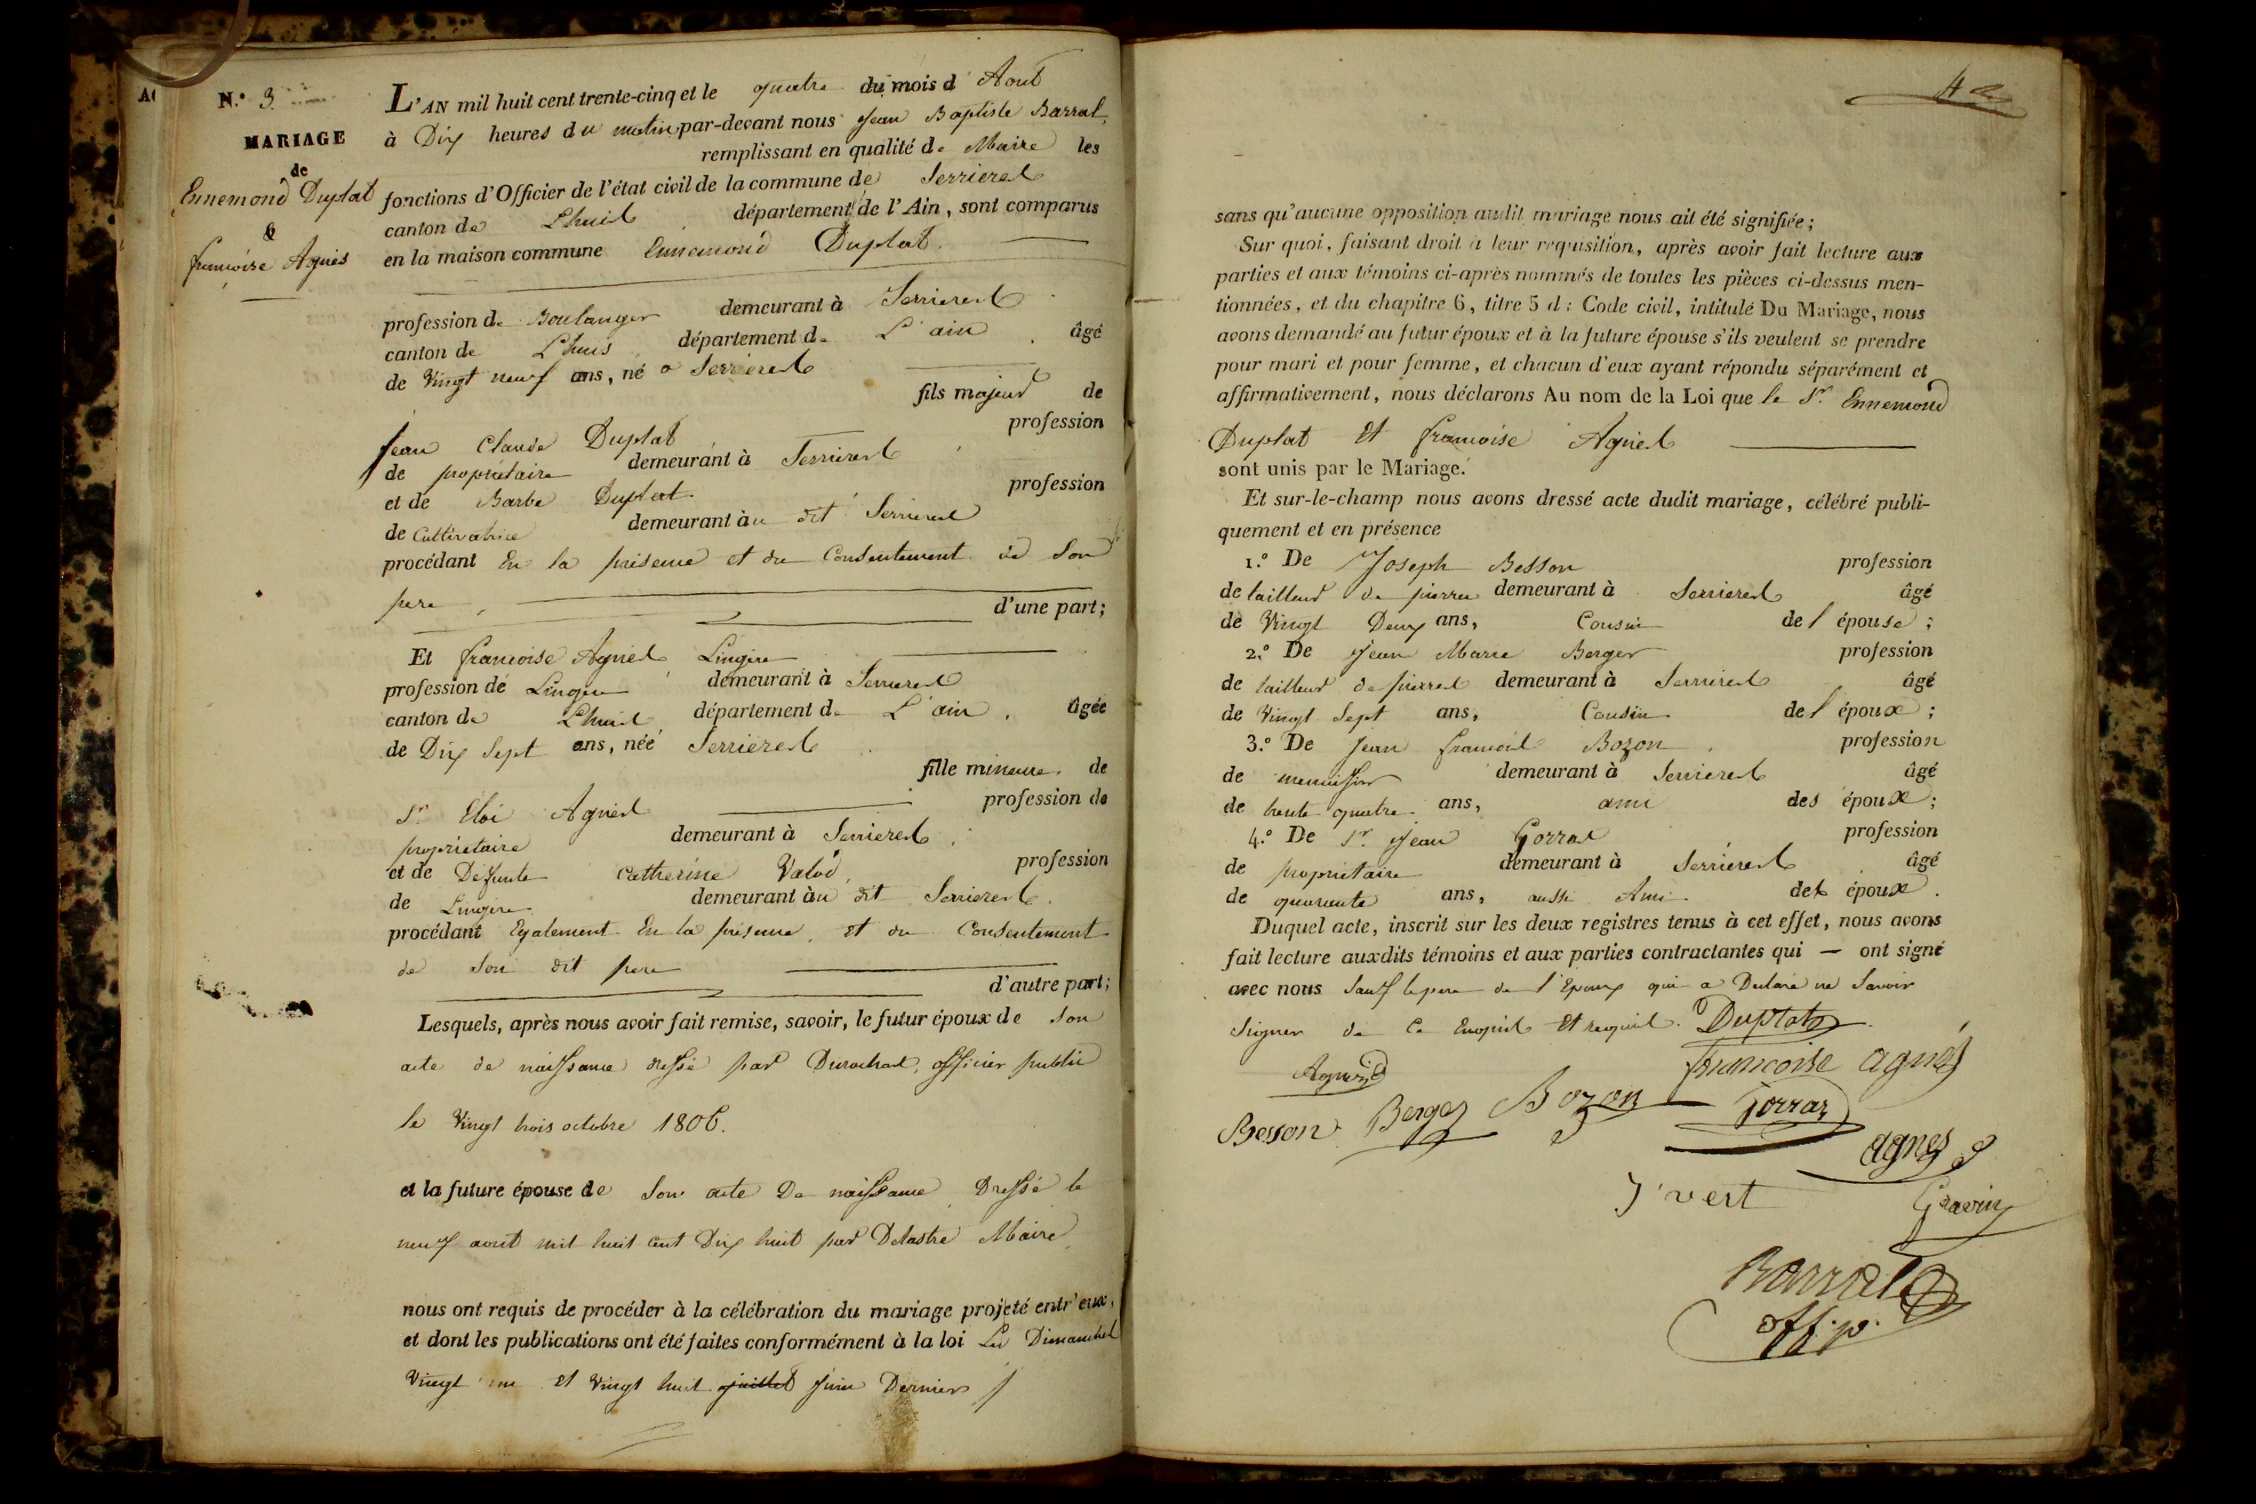 N.° 3.
MARIAGE
de
Ennemond Duplat
&
françoise Agniès
L'AN mil huit cent trente-cinq et le quatre du mois d'Aout
à Dix heures du matin par-devant nous Jean Baptiste Barral,
remplissant en qualité de Maire les
fonctions d'Officier de l'état civil de la commune de Serrieres
canton de Lhuis département de l'Ain, sont comparus
en la maison commune Ennemond Duplat.
profession de Boulanger demeurant à Serrieres
canton de Lhuis département de L'ain. âgé
de Vingt neuf ans, né a Serrieres
fils majeur de
Jean Claude Duplat profession
de propriétaire demeurant à Serrieres
et de Barbe Duplat profession
de Cultivatrice demeurant au dit Serrieres
procédant En la présence et du Consentement de Son
pere, d'une part;
Et francoise Agniès Lingère
profession de Lingere demeurant à Serrieres
canton de Lhuis département de L'ain, âgée
de Dix Sept ans, née Serrieres
fille mineure de
Sr. Eloi Agniès profession de
propriétaire demeurant à Serrieres
et de Defunte Catherine Valod, profession
de Lingère demeurant au dit Serrieres.
procédant Egalement En la présence, et du Consentement
de Son dit pere d'autre part;
Lesquels, après nous avoir fait remise, savoir, le futur époux de Son
acte de naissance dressé par Durochat, officier public
le Vingt trois octobre 1806.
et la future épouse de Son acte De naissance Dressé le
neuf aout mil huit cent Dix huit par Delastre Maire
nous ont requis de procéder à la célébration du mariage projeté entr'eux,
et dont les publications ont été faites conformément à la loi Les Dimanches
Vingt un et Vingt huit juillet Juin Dernier
sans qu'aucune opposition audit mariage nous ait été signifiée;
Sur quoi, faisant droit à leur requisition, après avoir fait lecture aux
parties et aux témoins ci-après nommés de toutes les pièces ci-dessus men-
tionnées, et du chapitre 6, titre 5 du Code civil, intitulé Du Mariage, nous
avons demandé au futur époux et à la future épouse s'ils veulent se prendre
pour mari et pour femme, et chacun d'eux ayant répondu séparément et
affirmativement, nous déclarons Au nom de la Loi que le Sr. Ennemond
Duplat Et francoise Agniès
sont unis par le Mariage.
Et sur-le-champ nous avons dressé acte dudit mariage, célébré publi-
quement et en présence
1.° De Joseph Besson profession
de tailleur de pierre demeurant à Serrieres âgé
de Vingt Deux ans, Cousin de l'épouse;
2.° De Jean Marie Berger profession
de tailleur de pierres demeurant à Serrieres âgé
de Vingt Sept ans, Cousin de l'époux;
3.° De Jean francois Bozon profession
de menuisier demeurant à Serrieres âgé
de trente quatre ans, ami des époux;
4.° De Sr. Jean Gorraz profession
de propriétaire demeurant à Serrieres âgé
de quarante ans, aussi Ami des époux.
Duquel acte, inscrit sur les deux registres tenus à cet effet, nous avons
fait lecture auxdits témoins et aux parties contractantes qui — ont signé
avec nous Sauf le pere de l'Epoux qui a Declaré ne Savoir
Signer de Ce Enquis Et requis. Duplat
francoise agnes
Besson Berger Bozon Gorraz
agnes
vert
Gravin
Barral
off. p.